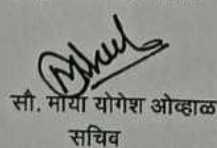 सौ. माया योगेश ओव्हाळ
सचिव